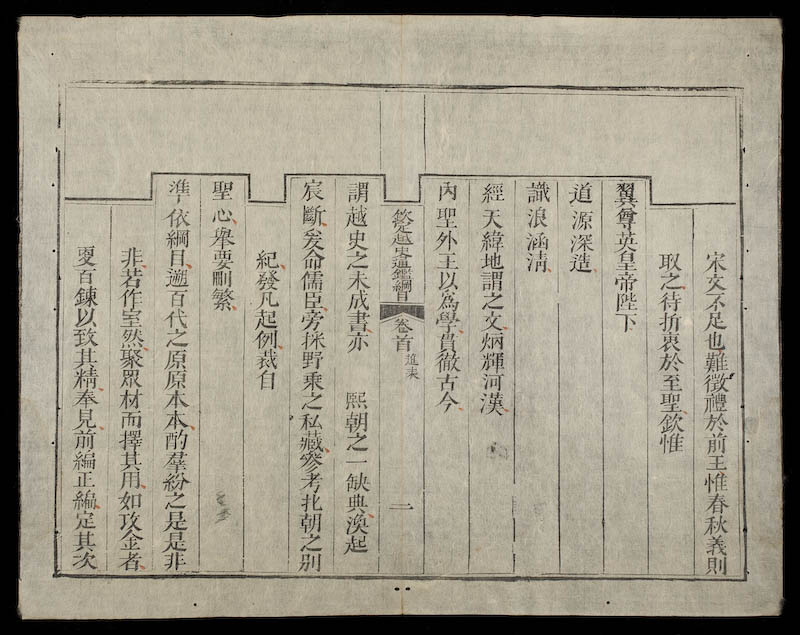 宋文不足也難徵禮於前王惟春秋義則
取之待折衷於至聖欽惟
翼尊英皇帝陛下
道源深造
識浪涵淸
經天緯地謂之文炳輝河漢
內聖外王以爲學貫徹古今
欽定越史通鑑綱目 卷首 進表 二
謂越史之未成書亦 熙朝之一缺典渙起
宸斷爰命儒臣旁採野乘之私藏參考北朝之別
紀發凡起例裁自
聖心舉要刪繁
準依綱目遡百代之原原本本酌羣紛之是是非
非若作室然聚眾材而擇其用如攻金者
更百鍊以致其精奉見前編正編定其次